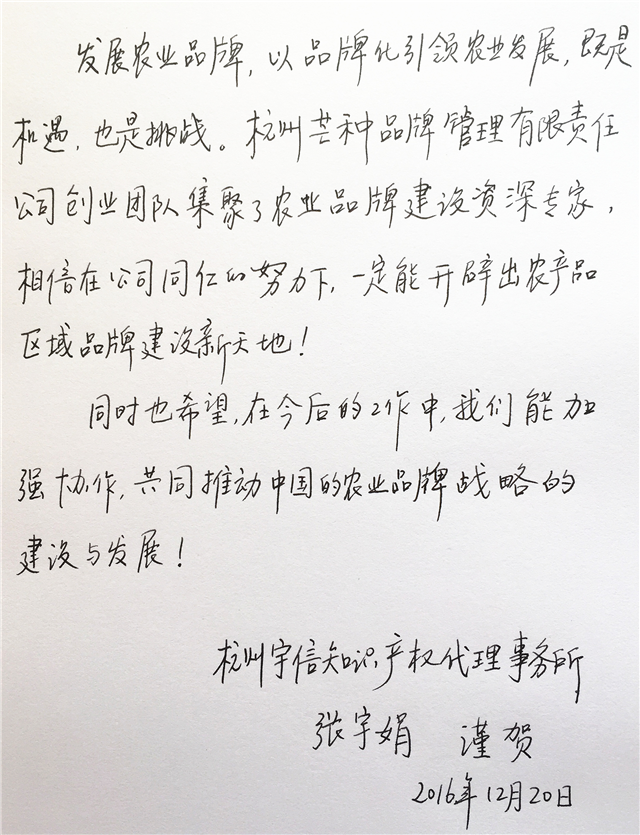 发展农业品牌，以品牌化引领农业发展，既是
机遇，也是挑战。杭州芒种品牌管理有限责任
公司创业团队集聚了农业品牌建设资深专家，
相信在公司同仁的努力下，一定能开辟出农产品
区域品牌建设新天地！
同时也希望，在今后的工作中，我们能加
强协作，共同推动中国的农业品牌战略的
建设与发展！
杭州宇信知识产权代理事务所
张宇娟 谨贺
2016年12月20日